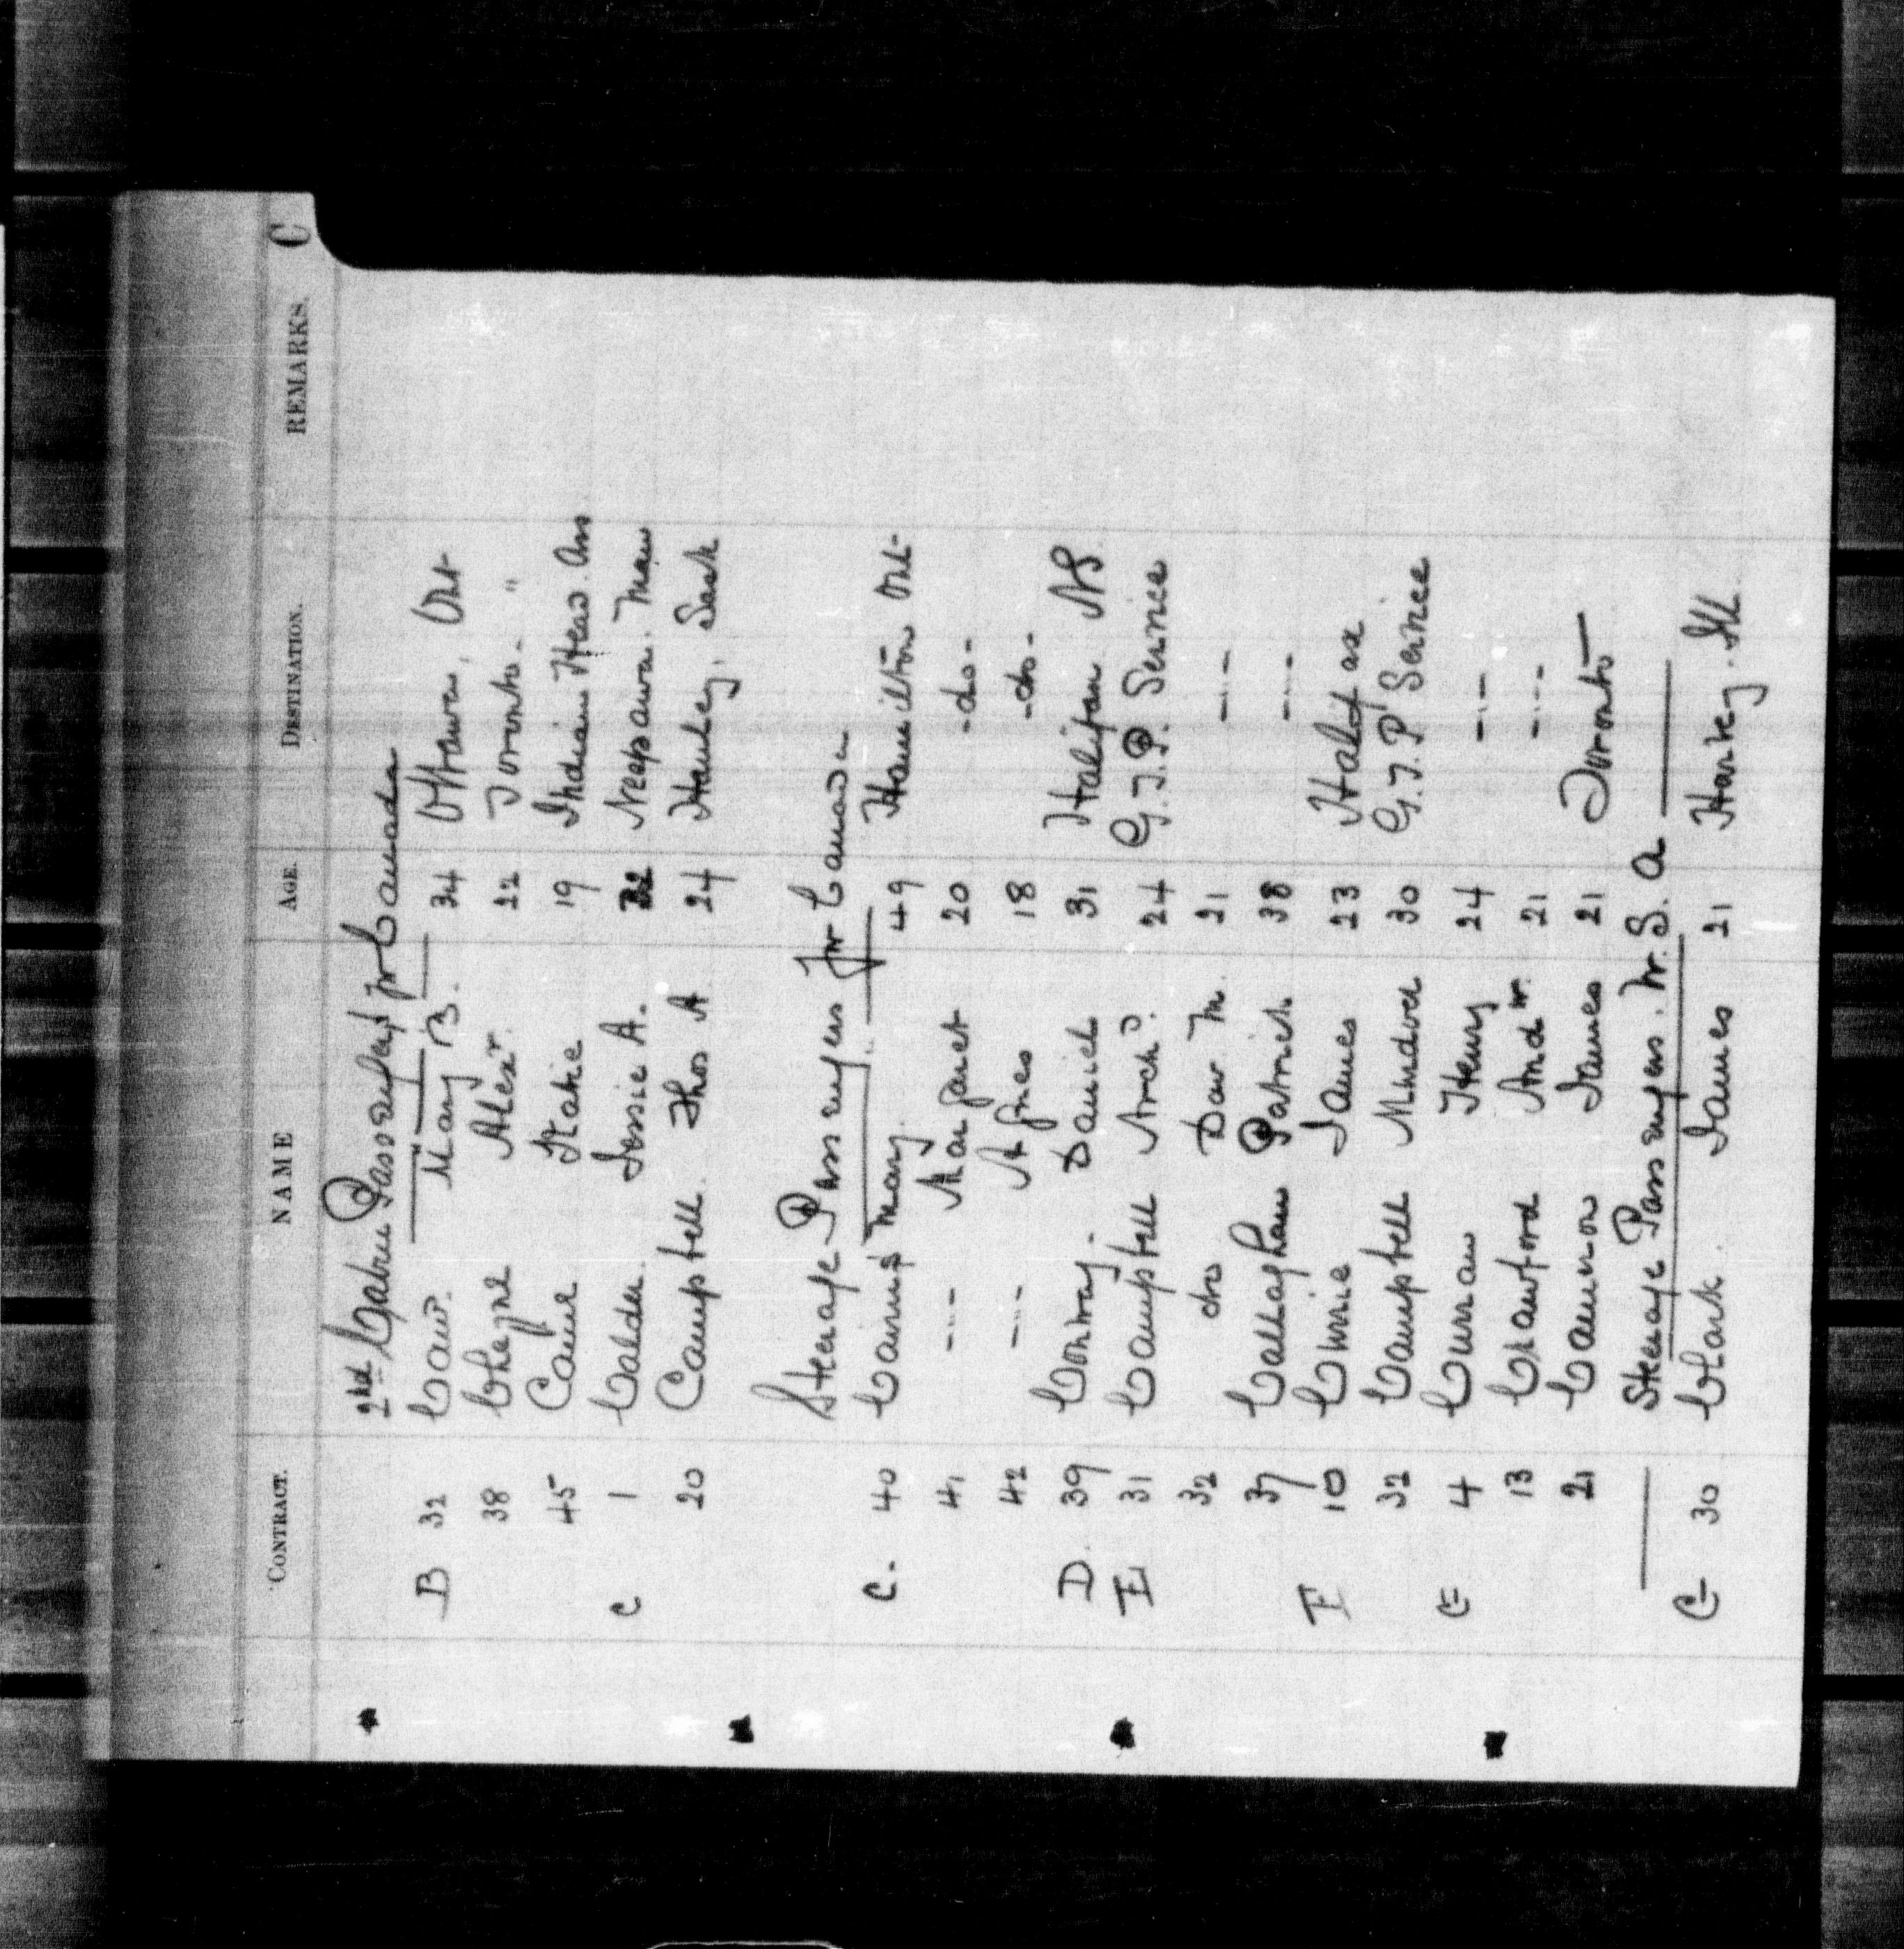 CONTRACT. NAME AGE. DESTINATION. REMARKS. C
2nd Cabin Passengers for Canada
B 32 Caw. Mary B. 34 Ottawa, Ont
38 Cheyne Alexr. 22 Toronto - "
45 Cane Katie 19 Indian Head. Ass
C 1 Calder. Jessie A. 32 Neepawa. Man
20 Campbell. Thos A 24 Hanley, Sask
Steerage Passengers for Canada
C. 40 Mary. 49 Hamilton Ont-
41 -"- Margaret 20 -do-
42 -"- Agnes 18 -do-
D. 39 Conway. Daniel 31 Halifax NS
E 31 Campbell Archd. 24 G.T.P. Service
32 do Dav. M. 21 -"-
37 Callaghan Patrick 38 -"-
F 10 Currie James 23 Halifax
32 Campbell Murdoch 30 G.T.P. Service
4 Curran Henry 24 -"-
13 Crawford Andw. 21 -"-
21 Cameron James 21 Toronto
Steerage Passengers. U.S.A
C 30 Clark. James 21 Harvey. Ill